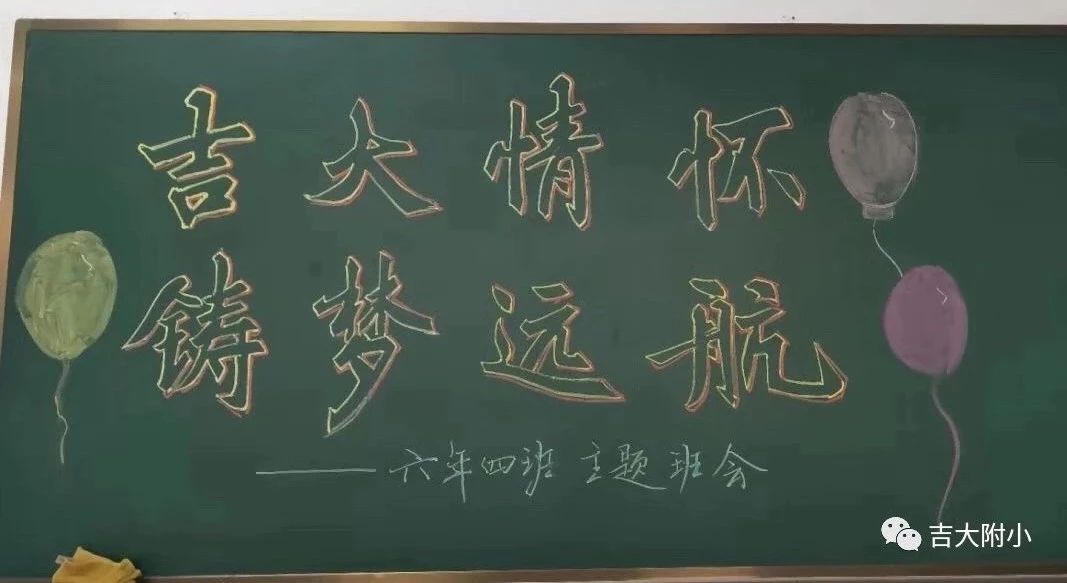 吉大情怀
铸梦远航
——六年四班 主题班会
吉大附小